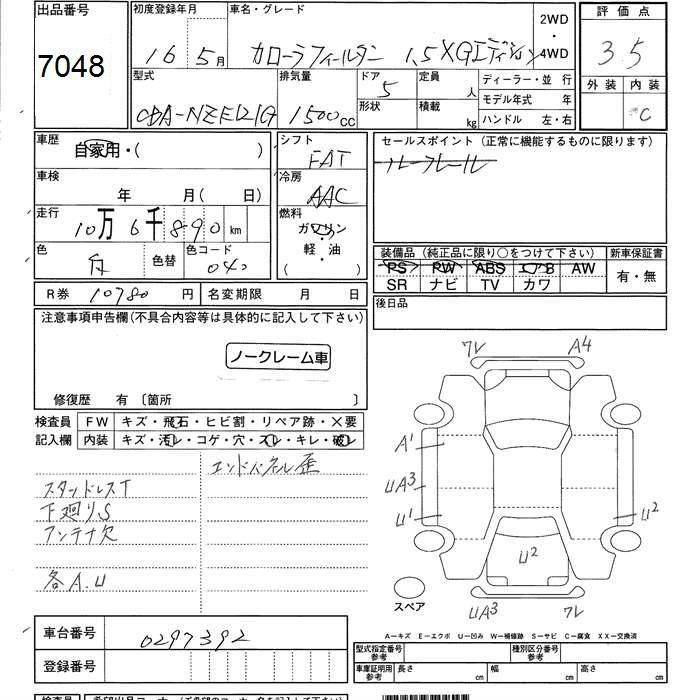 出品番号
7048
初度登録年月
16 年 5月
車名・グレード
カローラフィールダー 1.5 XGエディション
2WD
・
4WD
評価点
3.5
外装 内装
C
型式
CBA-NZE121G
排気量
1500cc
ドア
5
形状
定員
人
積載
kg
ディーラー・並行
モデル年式 年
ハンドル 左・右
車歴
自家用・( )
車検
年 月( 日)
走行
10万6千890km
色
白
色替
色コード
040
シフト
FAT
冷房
AAC
燃料
ガソリン
・
軽・油
( )
セールスポイント(正常に機能するものに限ります)
ルーフレール
装備品(純正品に限り○をつけて下さい)
新車保証書
PS PW ABS エアB AW
SR ナビ TV カワ
有・無
R券 10780円
名変期限 月 日
後日品
注意事項申告欄(不具合内容等は具体的に記入して下さい)
ノークレーム車
修復歴 有〔箇所 〕
検査員
記入欄
FW キズ・飛石・ヒビ割・リペア跡・×要
内装 キズ・汚レ・コゲ・穴・スレ・キレ・破レ
エンドパネル歪
スタッドレスT
下廻りS
アンテナ欠
各A.U
7V A4
A1
UA3
U1
U2
U2
UA3 7V
スペア
A―キズ E―エクボ U―凹み W―補修跡 S―サビ C―腐食 XX―交換済
車台番号
0297392
登録番号
型式指定番号
参考
種別区分番号
参考
車庫証明用
参考
長さ cm
幅 cm
高さ cm